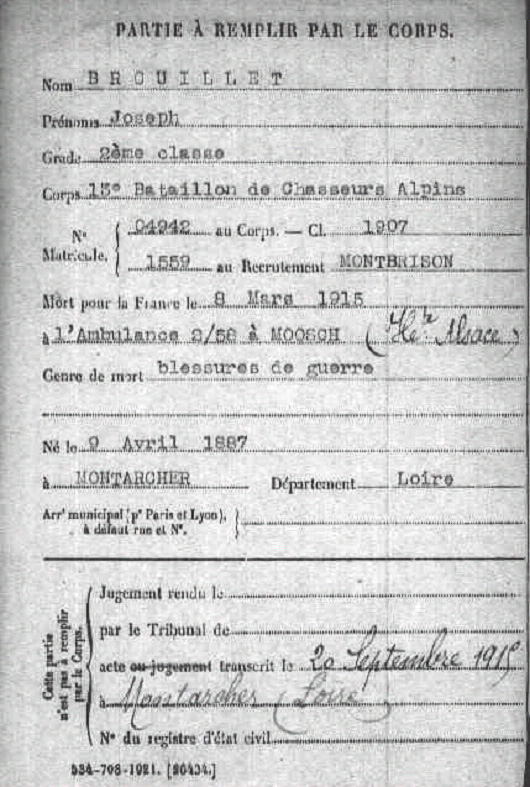 PARTIE À REMPLIR PAR LE CORPS.
Nom BROUILLET
Prénoms Joseph
Grade 2ème classe
Corps 15e Bataillon de Chasseurs Alpins
N° Matricule. { 04942 au Corps. — Cl. 1907
1559 au Recrutement MONTBRISON
Mort pour la France le 8 Mars 1915
à l'Ambulance 2/58 à MOOSCH (Hte Alsace)
Genre de mort blessures de guerre
Né le 9 Avril 1887
à MONTARCHER Département Loire
Arrt municipal (pr Paris et Lyon), à défaut rue et N°. }
Cette partie n'est pas à remplir par le Corps. {
Jugement rendu le
par le Tribunal de
acte ou jugement transcrit le 20 Septembre 1915
à Montarcher (Loire)
N° du registre d'état civil
534-708-1921. [26434.]